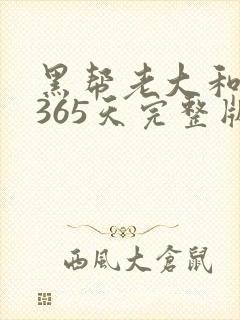 黑帮老大和
365天完整版
西风大仓鼠